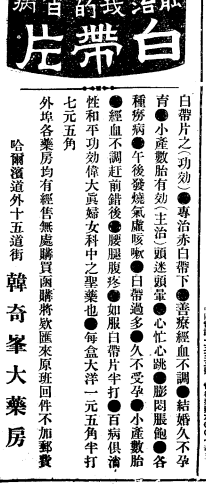 能治
我的
百病
白帶片
白帶片之(功効)●專治赤白帶下●善療經血不調●結婚久不孕
育●小產數胎有効(主治)頭迷頭暈●心忙心跳●膨悶脹飽●各
種癆病●午後發燒氣虛咳嗽●白帶過多●久不受孕●小產數胎
●經血不調赶前錯後●腰腿腹疼●如服白帶片半打●百病俱消
性和平功効偉大眞婦女科中之聖藥也●每盒大洋一元五角半打
七元五角
外埠各藥房均有經售無處購買函購將欵匯來原班回件不加郵費
哈爾濱道外十五道街
韓奇峯大藥房